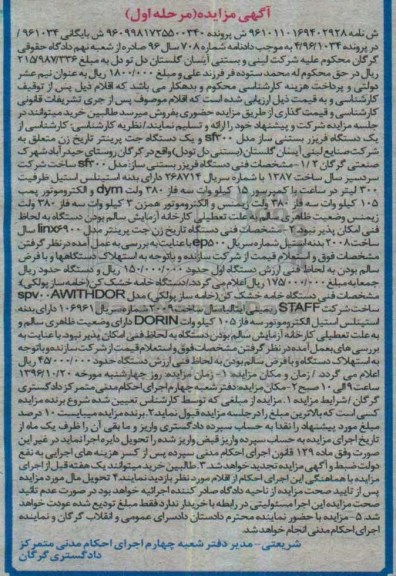 آگهی مزایده(مرحله اول)
ش نامه ۹۶۱۰۱۱۰۱۶۹۴۰۲۹۲۸ ش پرونده ۹۶۰۹۹۸۱۷۲۵۵۰۰۳۴۰ ش بایگانی ۹۶۱۰۳۴/
در پرونده ۴/۹۶/۱۰۳۴ به موجب دادنامه شماره ۷۰۸ سال ۹۶ صادره از شعبه نهم دادگاه حقوقی
گرگان محکوم علیه شرکت لبنی و بستنی آیسان گلستان دل تو دل به پرداخت مبلغ ۲۱۵/۹۸۷/۳۳۶
ریال در حق محکوم له محمد ستوده فر فرزند علی و مبلغ ۱۸۰۰/۰۰۰ ریال به عنوان نیم عشر
دولتی و پرداخت هزینه کارشناسی محکوم و بدهکار می باشد که اقلام ذیل پس از توقیف
کارشناسی و به قیمت ذیل ارزیابی شده است که اقلام موصوف پس از جری تشریفات قانونی
کارشناسی و قیمت گذاری از طریق مزایده حضوری بفروش میرسد طالبین خرید میتوانند در
جلسه مزایده شرکت و پیشنهاد خود را ارائه و تسلیم نمایند/نظریه کارشناسی: کارشناسی از
یک دستگاه فریزر بستنی ساز مدل sf۳۰۰ و یک دستگاه جت پرینتر تاریخ زن متعلق به
شرکت صنایع لبنی آیسان گلستان(بستنی دل تودل)واقع در گرگان روستای حیدرآباد شهرک
صنعتی گرگان ۲/ ۱- مشخصات فنی دستگاه فریزر بستنی ساز مدل sf۳۰۰ ساخت شرکت
سردسیر سال ساخت ۱۳۸۷ با شماره سریال ۲۶۸۷۱۴ دارای بدنه استینلس استیل ظرفیت
۳۰۰ لیتر در ساعت با کمپرسور ۱۵ کیلو وات سه فاز ۳۸۰ ولت dym و الکتروموتور پمپ
۱۰۵ کیلو وات سه فاز ۳۸۰ ولت زیمنس و الکتروموتور همزن ۳ کیلو وات سه فاز ۳۸۰ ولت
زیمنس وضعیت ظاهری سالم به علت تعطیلی کارخانه آزمایش سالم بودن دستگاه به لحاظ
فنی امکان پذیر نبود ۲- مشخصات فنی دستگاه تاریخ زن جت پرینتر مدل linx۶۹۰۰ سال
ساخت ۲۰۰۸ بدنه استیل شماره سریال ep۵۰۰ با عنایت به بررسی به عمل آمده در نظر گرفتن
مشخصات فوق و استعلام قیمت از شرکت سازنده و باتوجه به استهلاک دستگاهها و با فرض
سالم بودن به لحاظ فنی ارزش دستگاه اول حدود ۱۵۰/۰۰۰/۰۰۰ ریال و دستگاه حدود ریال
جمعا به مبلغ ۱۷۵/۰۰۰/۰۰۰ ریال اعلام می گردد./دستگاه خامه خشک کن(خامه ساز پولکی):
مشخصات فنی دستگاه خامه خشک کن(خامه ساز پولکی) مدل spv۰۰AWITHDOR
ساخت شرکت STAFF رسمی ایتالیا سال ساخت ۲۰۰۹ شماره سریال ۱۰۶۹۶۱ دارای بدنه
استینلس استیل الکتروموتور سه فاز ۱۰۵ کیلو وات DORIN دارای وضعیت ظاهری سالم و
به علت تعطیلی کارخانه آزمایش سالم بودن دستگاه به لحاظ فنی امکان پذیر نبود. با عنایت به
بررسی های بعمل آمده در نظر گرفتن مشخصات فوق و استعلام قیمت از شرکت سازنده و باتوجه
به استهلاک دستگاه و با فرض سالم بودن به لحاظ فنی ارزش دستگاه حدود ۴۵/۰۰۰/۰۰۰ ریال
اعلام می گردد / زمان و مکان مزایده: ۱- زمان مزایده: روز چهارشنبه مورخه ۱۳۹۶/۱۰/۲۰
ساعت ۹ الی ۱۰ صبح ۲- مکان مزایده دفتر شعبه چهارم اجرای احکام مدنی متمرکز دادگستری
گرگان /شرایط مزایده ۱. مزایده از مبلغی که توسط کارشناس تعیین شده شروع برنده مزایده
کسی است که بالاترین مبلغ را در جلسه مزایده قبول نماید ۲. برنده مزایده میبایست ۱۰ درصد
مبلغ مورد پیشنهاد را نقدا به حساب سپرده دادگستری واریز و ما بقی آن را ظرف یک ماه از
تاریخ اجرای مزایده به حساب سپرده واریز فیش واریز شده را تحویل دایره اجرا نماید در غیر این
صورت وفق ماده ۱۲۹ قانون اجرای احکام مدنی سپرده پس از کسر هزینه های اجرایی به نفع
دولت ضبط و آگهی مزایده تجدید خواهد شد. ۳. طالبین خرید میتوانند یک هفته قبل از اجرای
مزایده با هماهنگی این اجرای احکام از اقلام مورد نظر بازدید نمایند ۴. تحویل مال مورد مزایده
پس از تایید صحت مزایده از ناحیه دادگاه صادر کننده اجرائیه خواهد بود در صورت عدم تائید
صحت مزایده این اجرا مسئولیتی در رابطه با خریدار ندارد فقط مبلغ تودیع شده عودت خواهد
شد. ۵- مزایده با حضور نماینده محترم دادستان دادسرای عمومی و انقلاب گرگان و نماینده
اجرای احکام مدنی انجام خواهد شد
شریعتی- مدیر دفتر شعبه چهارم اجرای احکام مدنی متمرکز
دادگستری گرگان